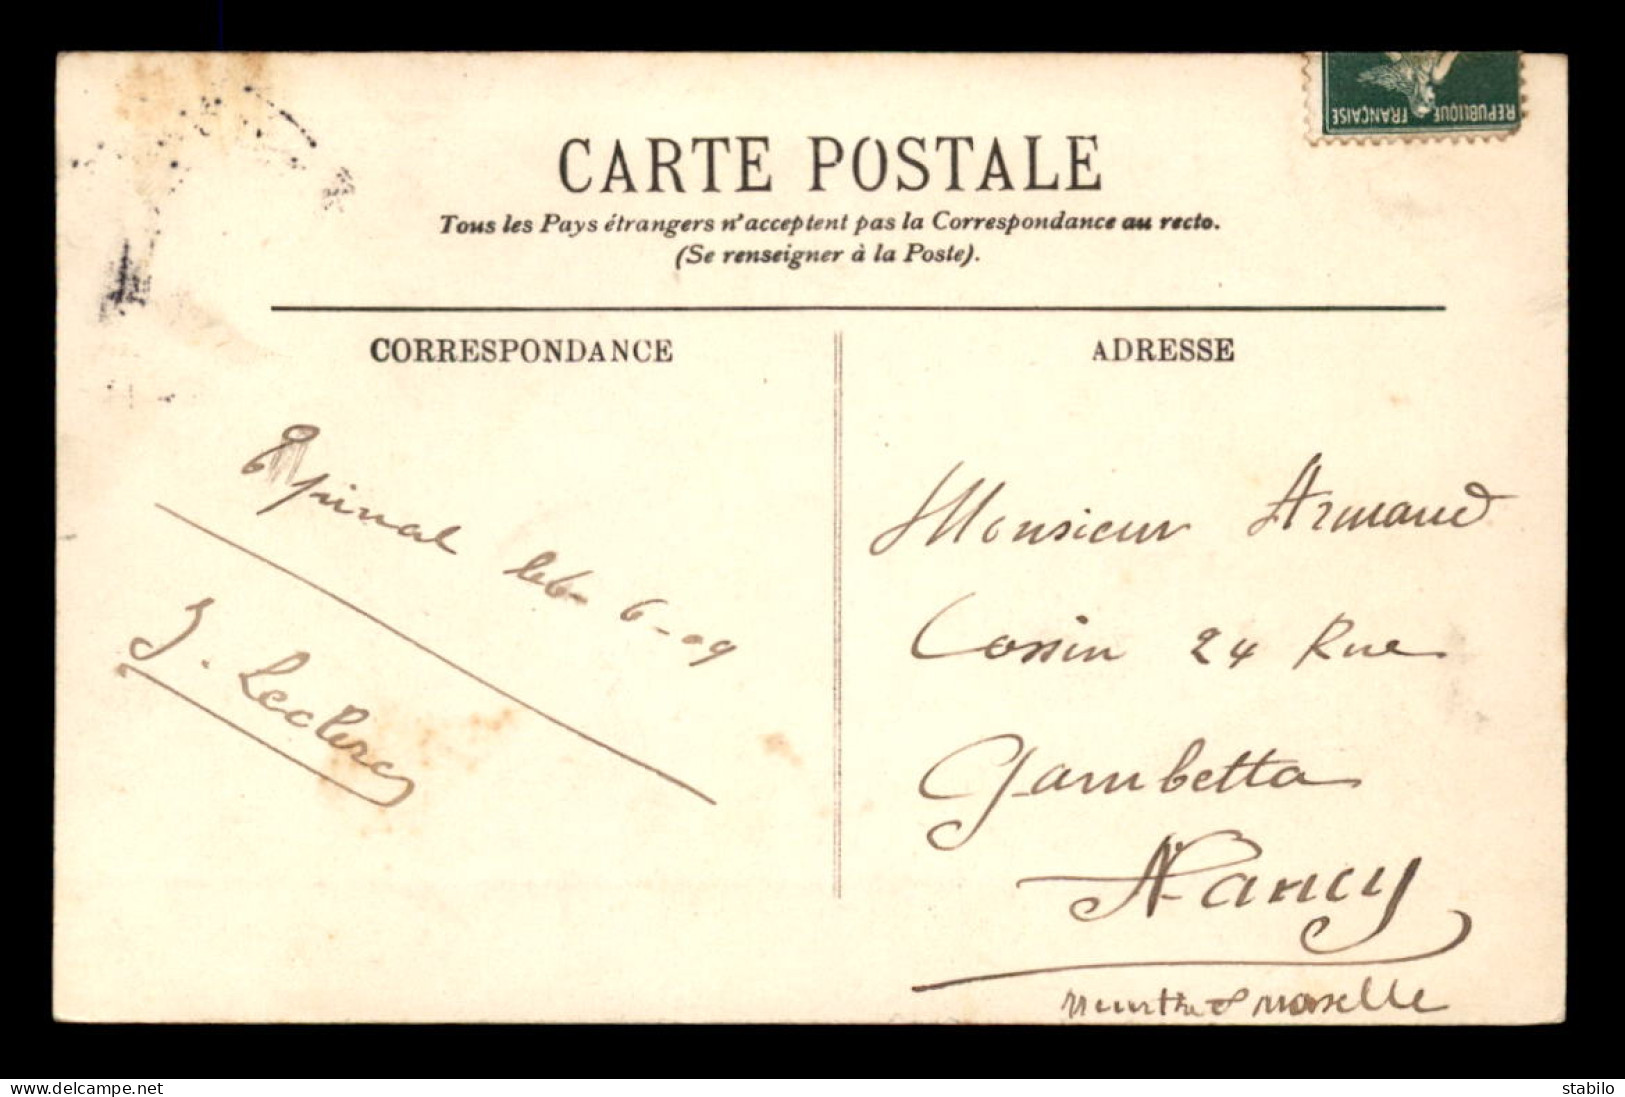 REPUBLIQUE FRANÇAISE
CARTE POSTALE
Tous les Pays étrangers n'acceptent pas la Correspondance au recto.
(Se renseigner à la Poste).
CORRESPONDANCE
Epinal le 6-6-09
J. Leclerc
ADRESSE
Monsieur Armand
Cossin 24 Rue
Gambetta
Nancy
Meurthe & Moselle
www.delcampe.net
stabilo